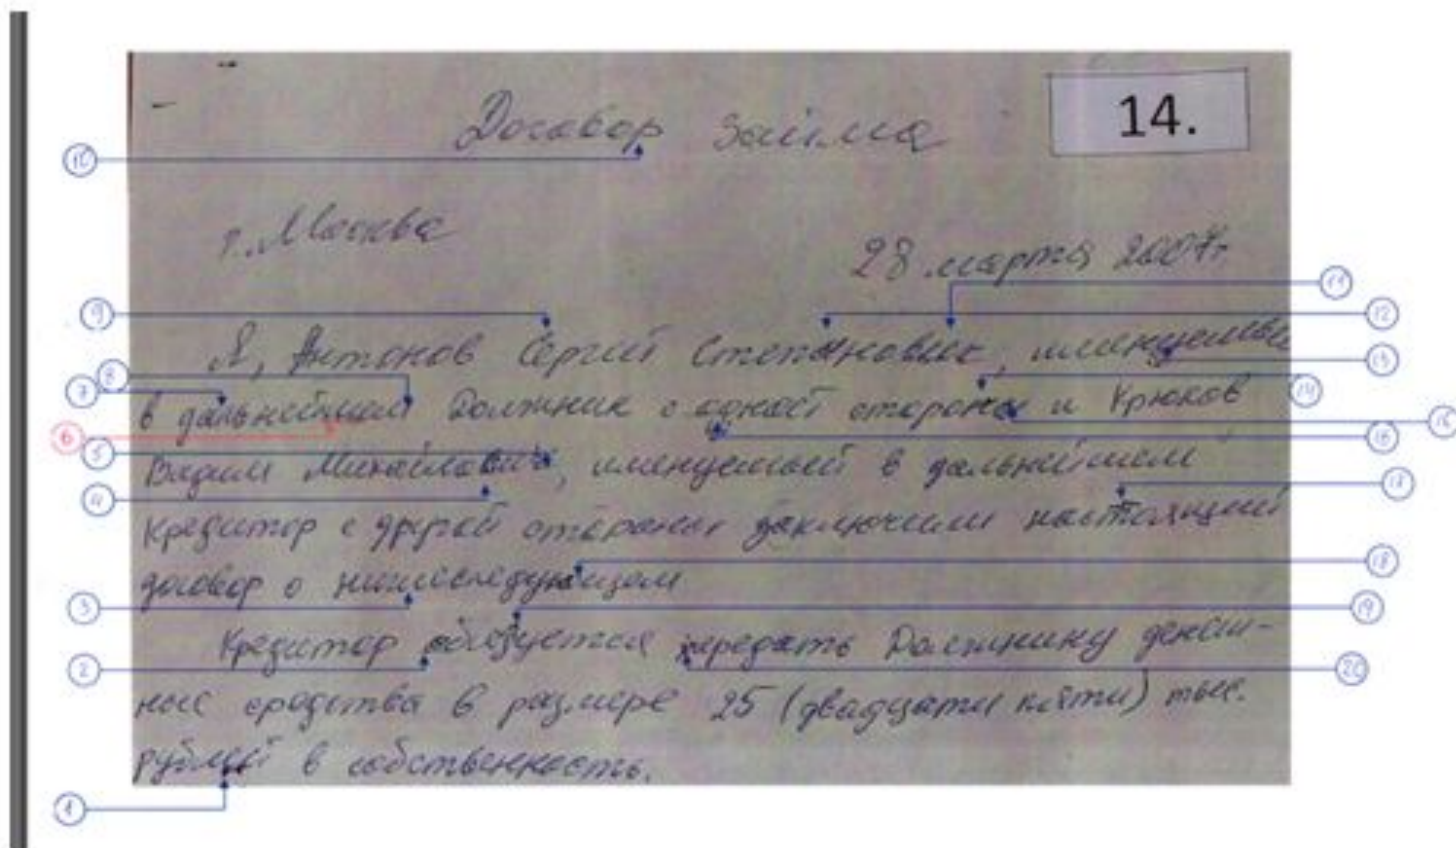 14.
Договор займа
г. Москва
28 марта 2007г.
Я, Антонов Сергей Степанович, именуемый
в дальнейшем Должник с одной стороны и Крюков
Вадим Михайлович, именуемый в дальнейшем
Кредитор с другой стороны заключили настоящий
договор о нижеследующем
Кредитор обязуется передать Должнику денеж-
ные средства в размере 25 (двадцати пяти) тыс.
рублей в собственность.
10
9
8
7
6
5
4
3
2
1
11
12
13
14
15
16
17
18
19
20